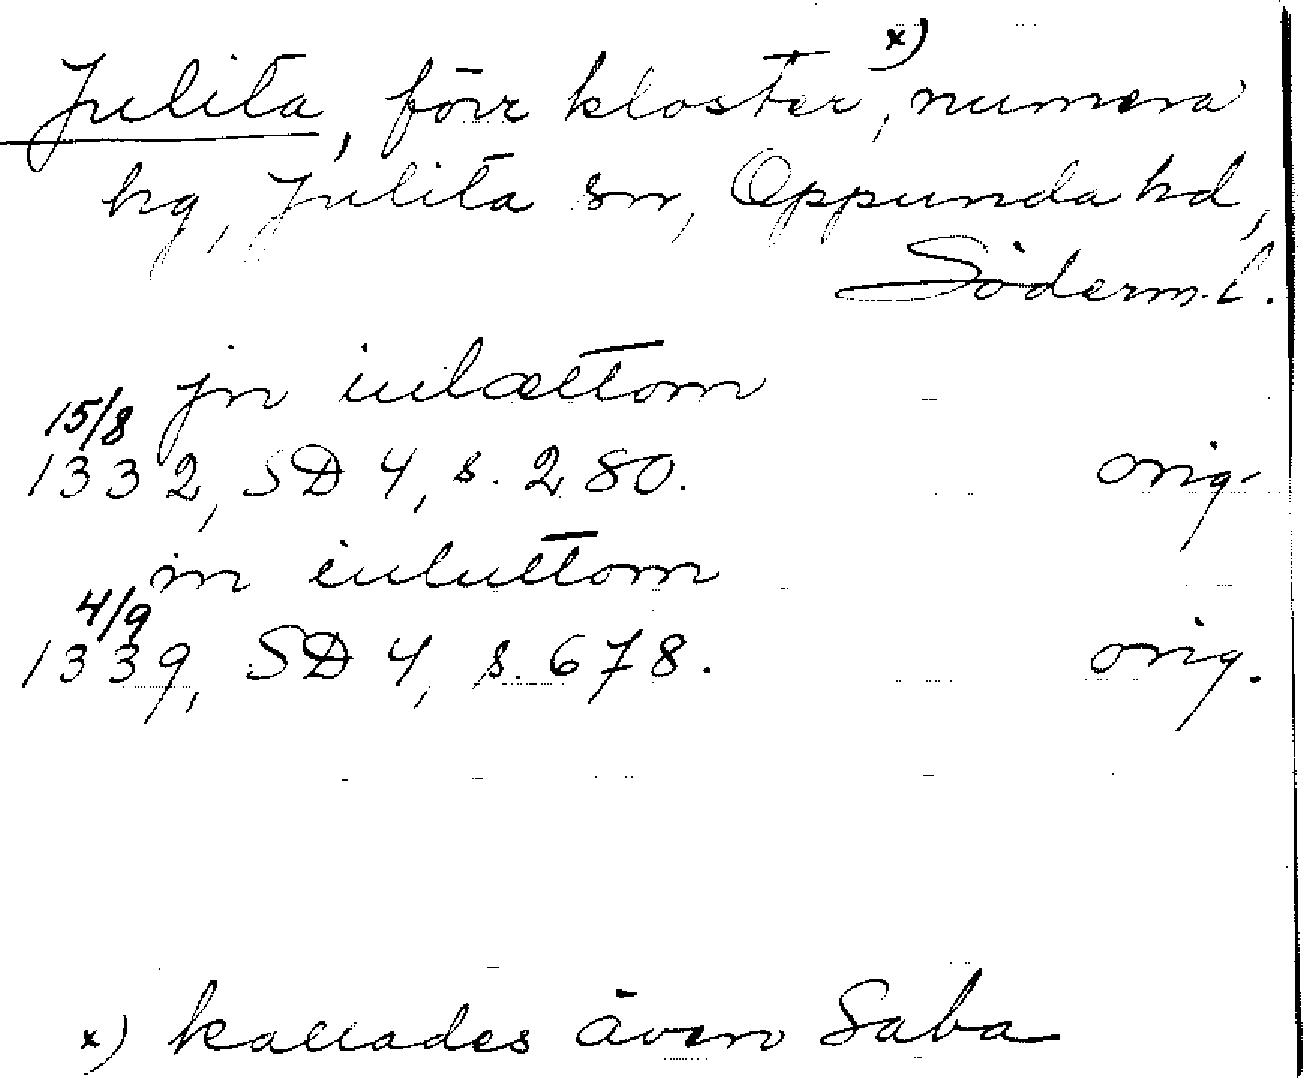 Julita, förr kloster x), numera
hg, Julita sn, Oppunda hd,
Söderm. l.
jn iulættom
15/8
1332, SD 4, s. 280. orig.
in iuluttom
4/9
1339, SD 4, s. 678. orig.
x) kallades även Saba